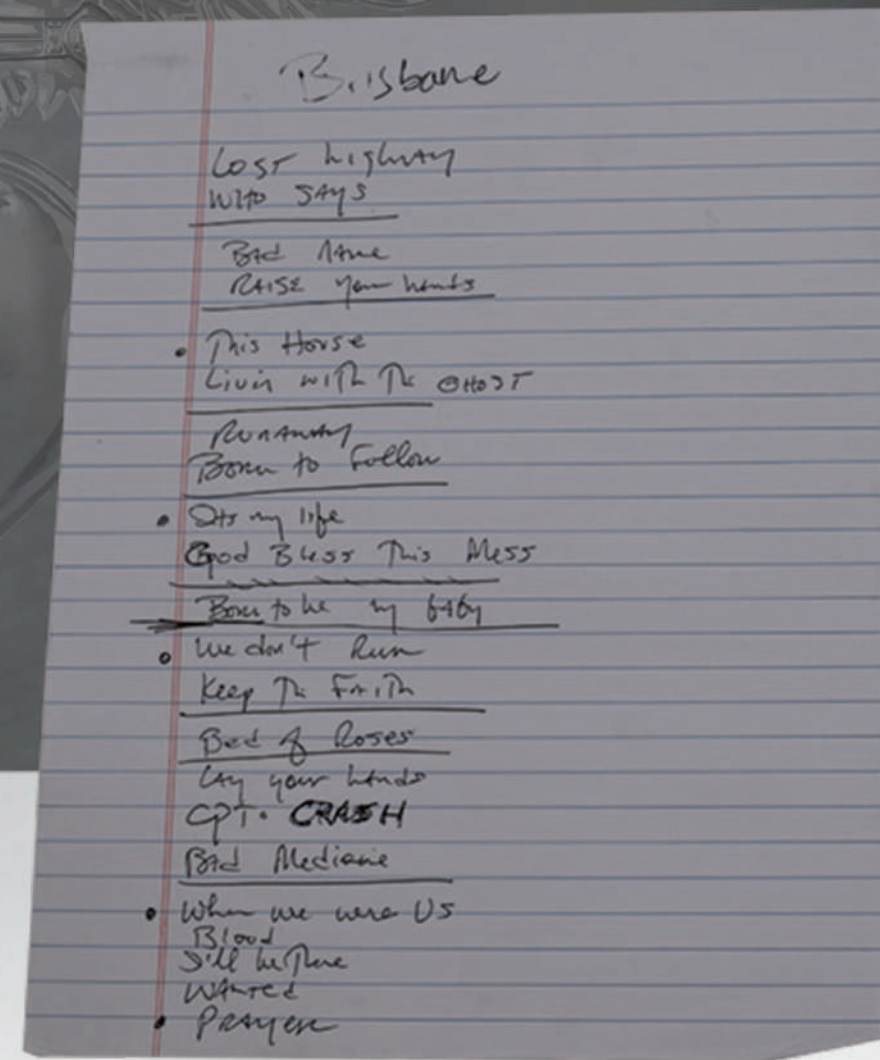 Brisbane
Lost highway
Who SAYS
Bad Name
RAISE your hands
• This House
Livin with The GHOST
RUNAWAY
Born to Follow
• Its my life
God Bless This Mess
Born to be my baby
• We don't Run
Keep The Faith
Bed of Roses
Lay your hands
CPT. CRASH
Bad Medicine
• When we were US
Blood
I'll be There
WANTED
• PRAYER